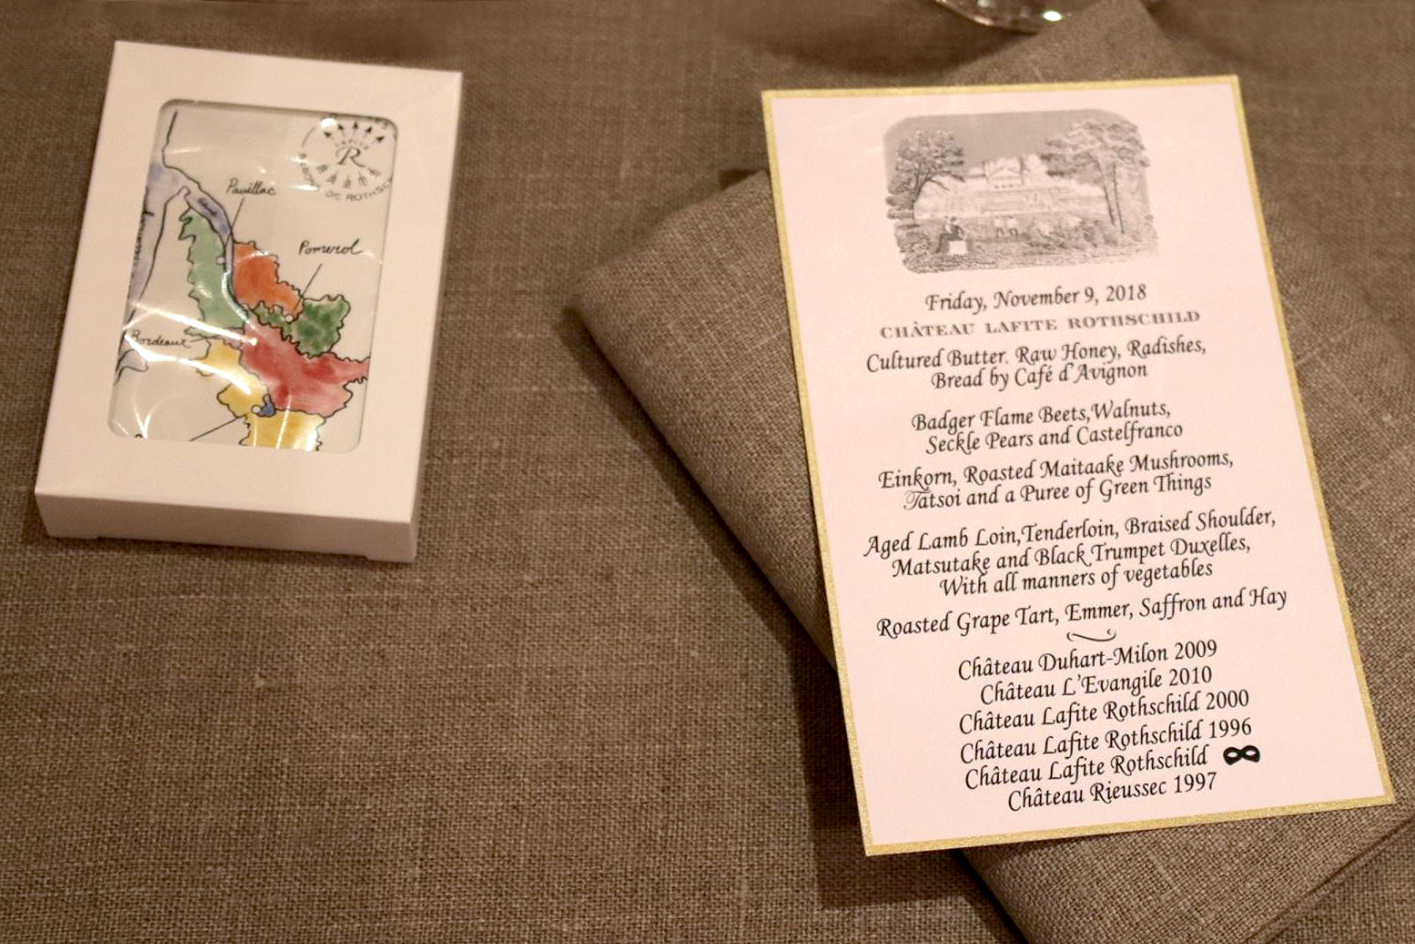 LAFITE
R
BARONS DE ROTHSC
Pauillac
Pomerol
Bordeaux
Friday, November 9, 2018
CHÂTEAU LAFITE ROTHSCHILD
Cultured Butter. Raw Honey, Radishes,
Bread by Café d'Avignon
Badger Flame Beets,Walnuts,
Seckle Pears and Castelfranco
Einkorn, Roasted Maitaake Mushrooms,
Tatsoi and a Puree of Green Things
Aged Lamb Loin,Tenderloin, Braised Shoulder,
Matsutake and Black Trumpet Duxelles,
With all manners of vegetables
Roasted Grape Tart, Emmer, Saffron and Hay
Château Duhart-Milon 2009
Château L'Evangile 2010
Château Lafite Rothschild 2000
Château Lafite Rothschild 1996
Château Lafite Rothschild
Château Rieussec 1997